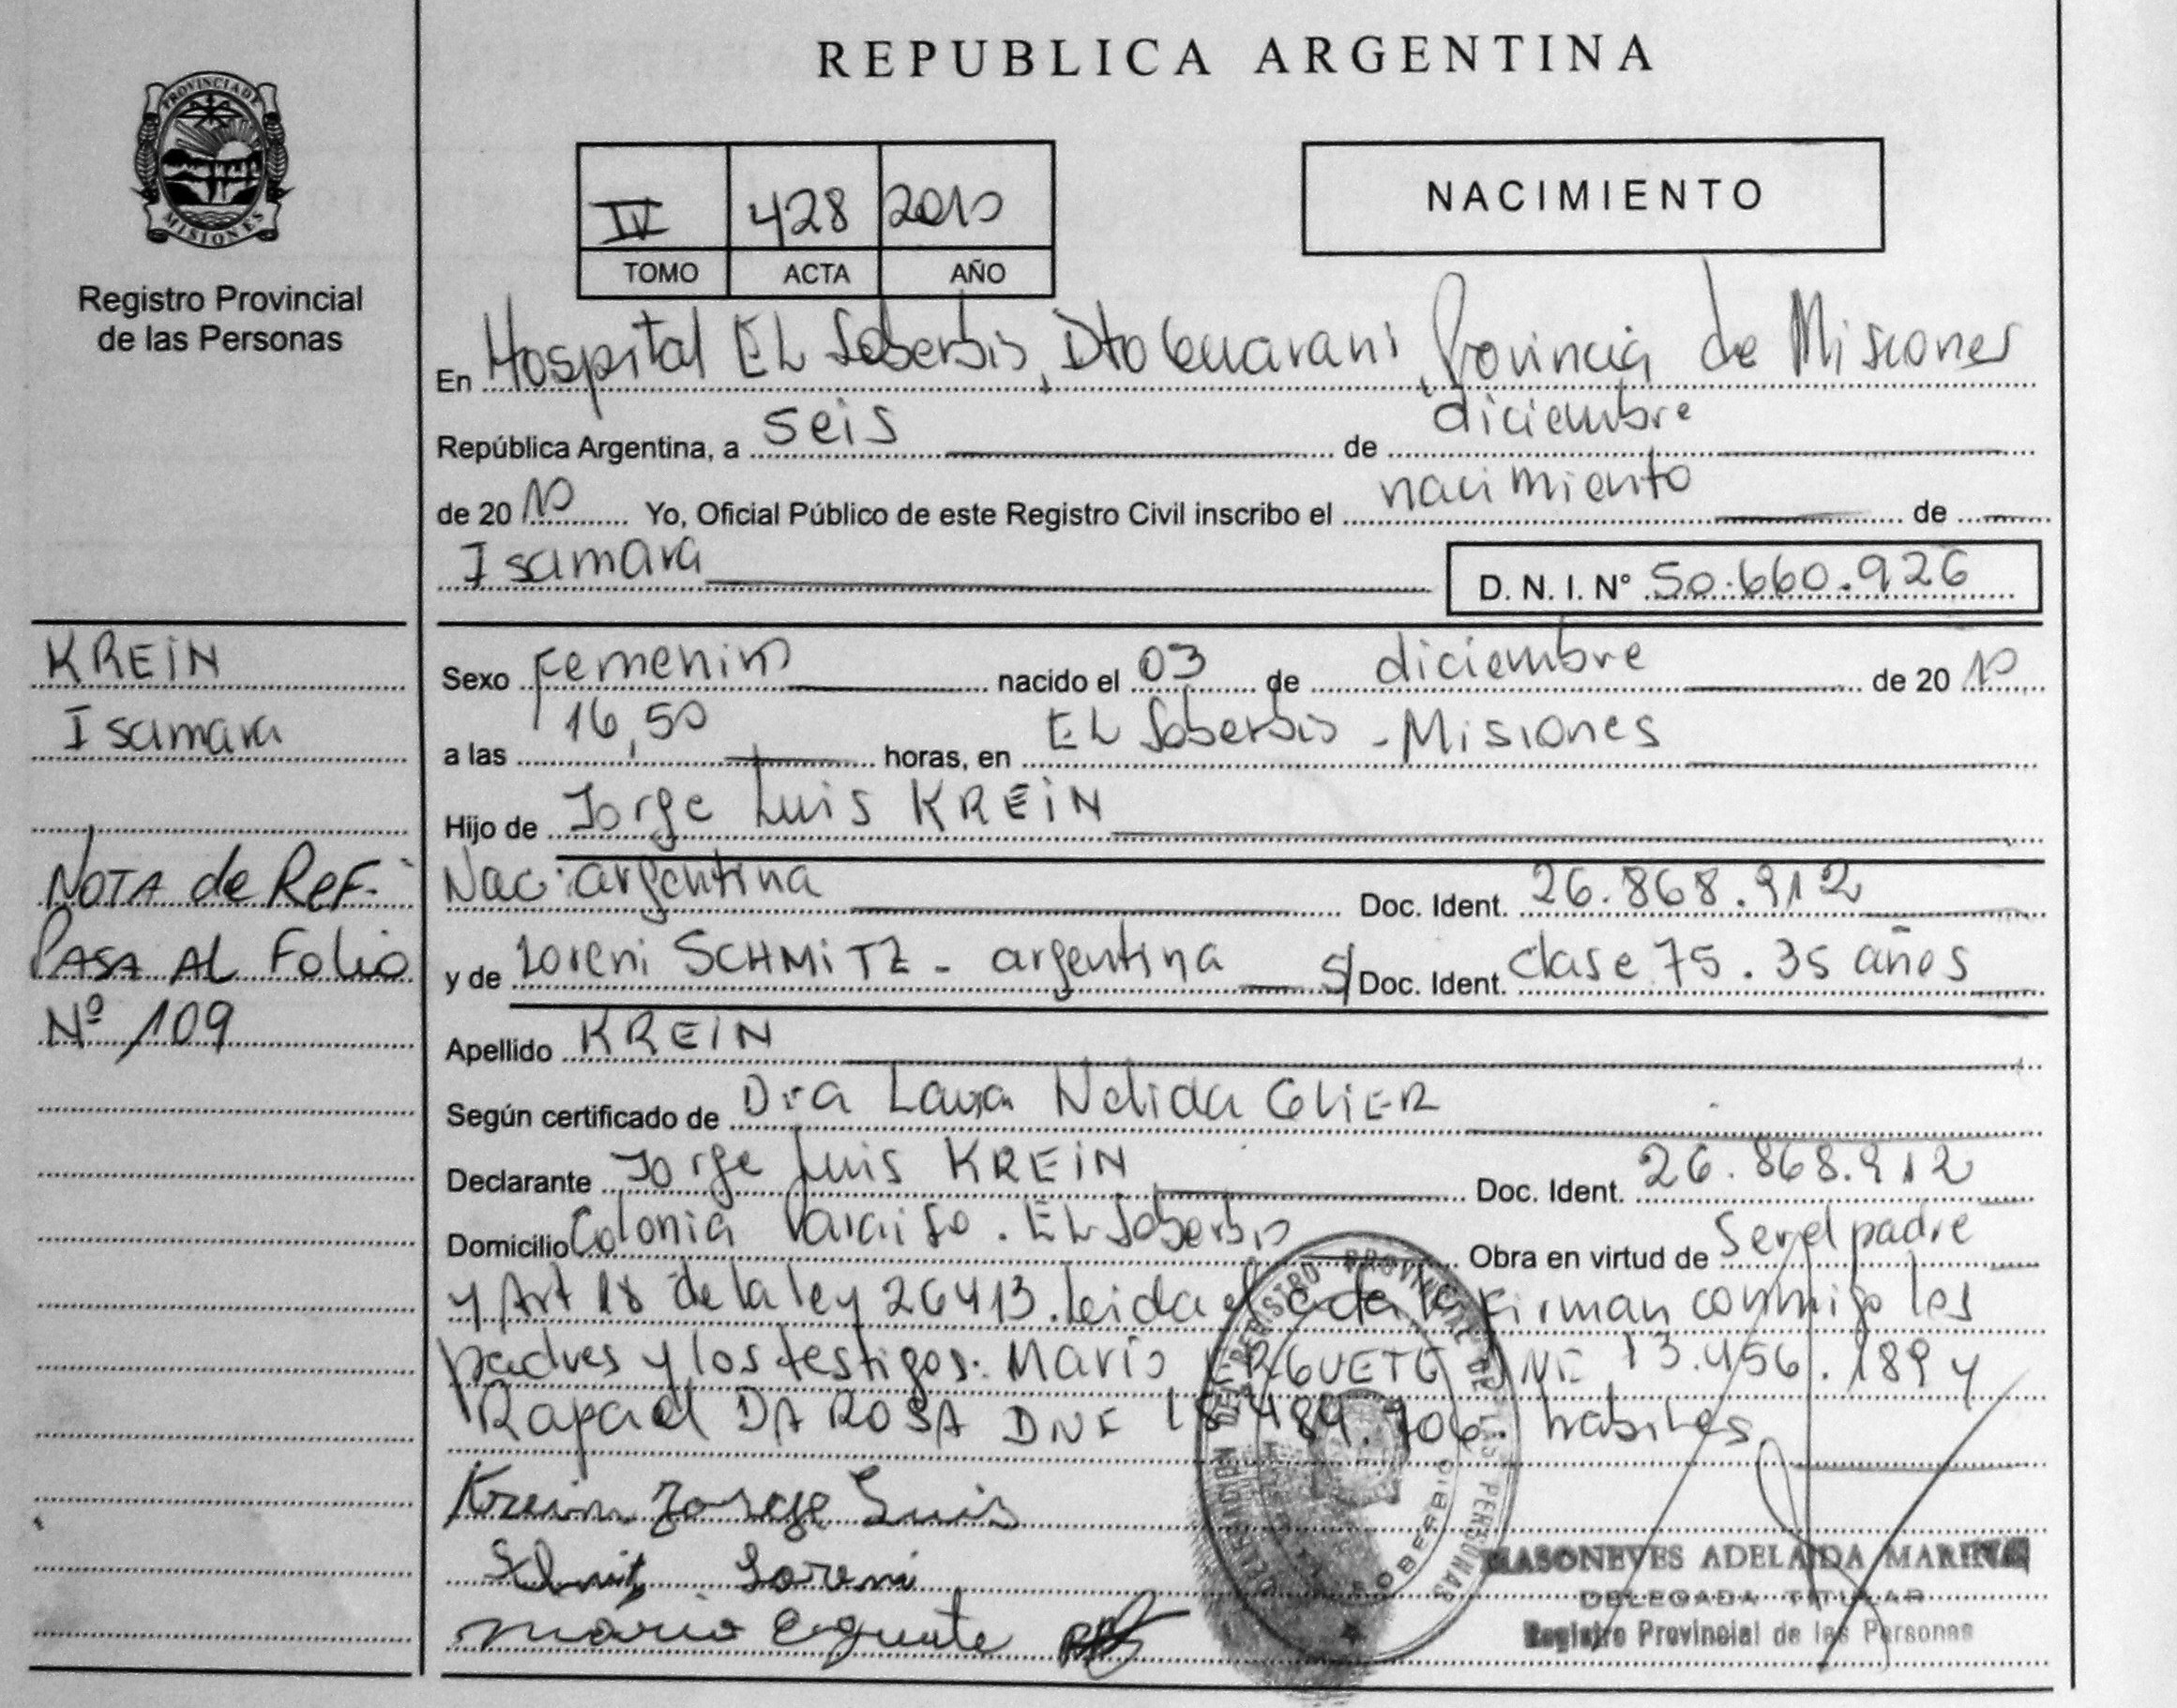 REPUBLICA ARGENTINA
PROVINCIA DE
MISIONES
Registro Provincial
de las Personas
IV 428 2010
TOMO ACTA AÑO
NACIMIENTO
En Hospital EL Soberbio, Dto Guarani, Provincia de Misiones
República Argentina, a seis de diciembre
de 2010 Yo, Oficial Público de este Registro Civil inscribo el nacimiento de
Isamara D. N. I. N° 50.660.926
KREIN
Isamara
NOTA de ReF.
PASA AL Folio
Nº 109
Sexo Femenino nacido el 03 de diciembre de 2010
a las 16,50 horas, en EL Soberbio - Misiones
Hijo de Jorge Luis KREIN
Nac. argentina Doc. Ident. 26.868.912
y de Loreni SCHMITZ - argentina S/ Doc. Ident. clase 75. 35 años
Apellido KREIN
Según certificado de Dra Laura Nelida GLIER
Declarante Jorge Luis KREIN Doc. Ident. 26.868.912
Domicilio Colonia Paraiso. EL Soberbio Obra en virtud de Ser el padre
y Art 18 de la ley 26413. leida el acta la firman conmigo los
padres y los testigos: Mario 13.456.189 y
Rafael DA ROSA DNI habiles
Krein Jorge Luis
Loreni
Mario
REGISTRO PROVINCIAL DE LAS PERSONAS
SOBERBIO
MASONEVES ADELAIDA MARINA
DELEGADA TITULAR
Registro Provincial de las Personas